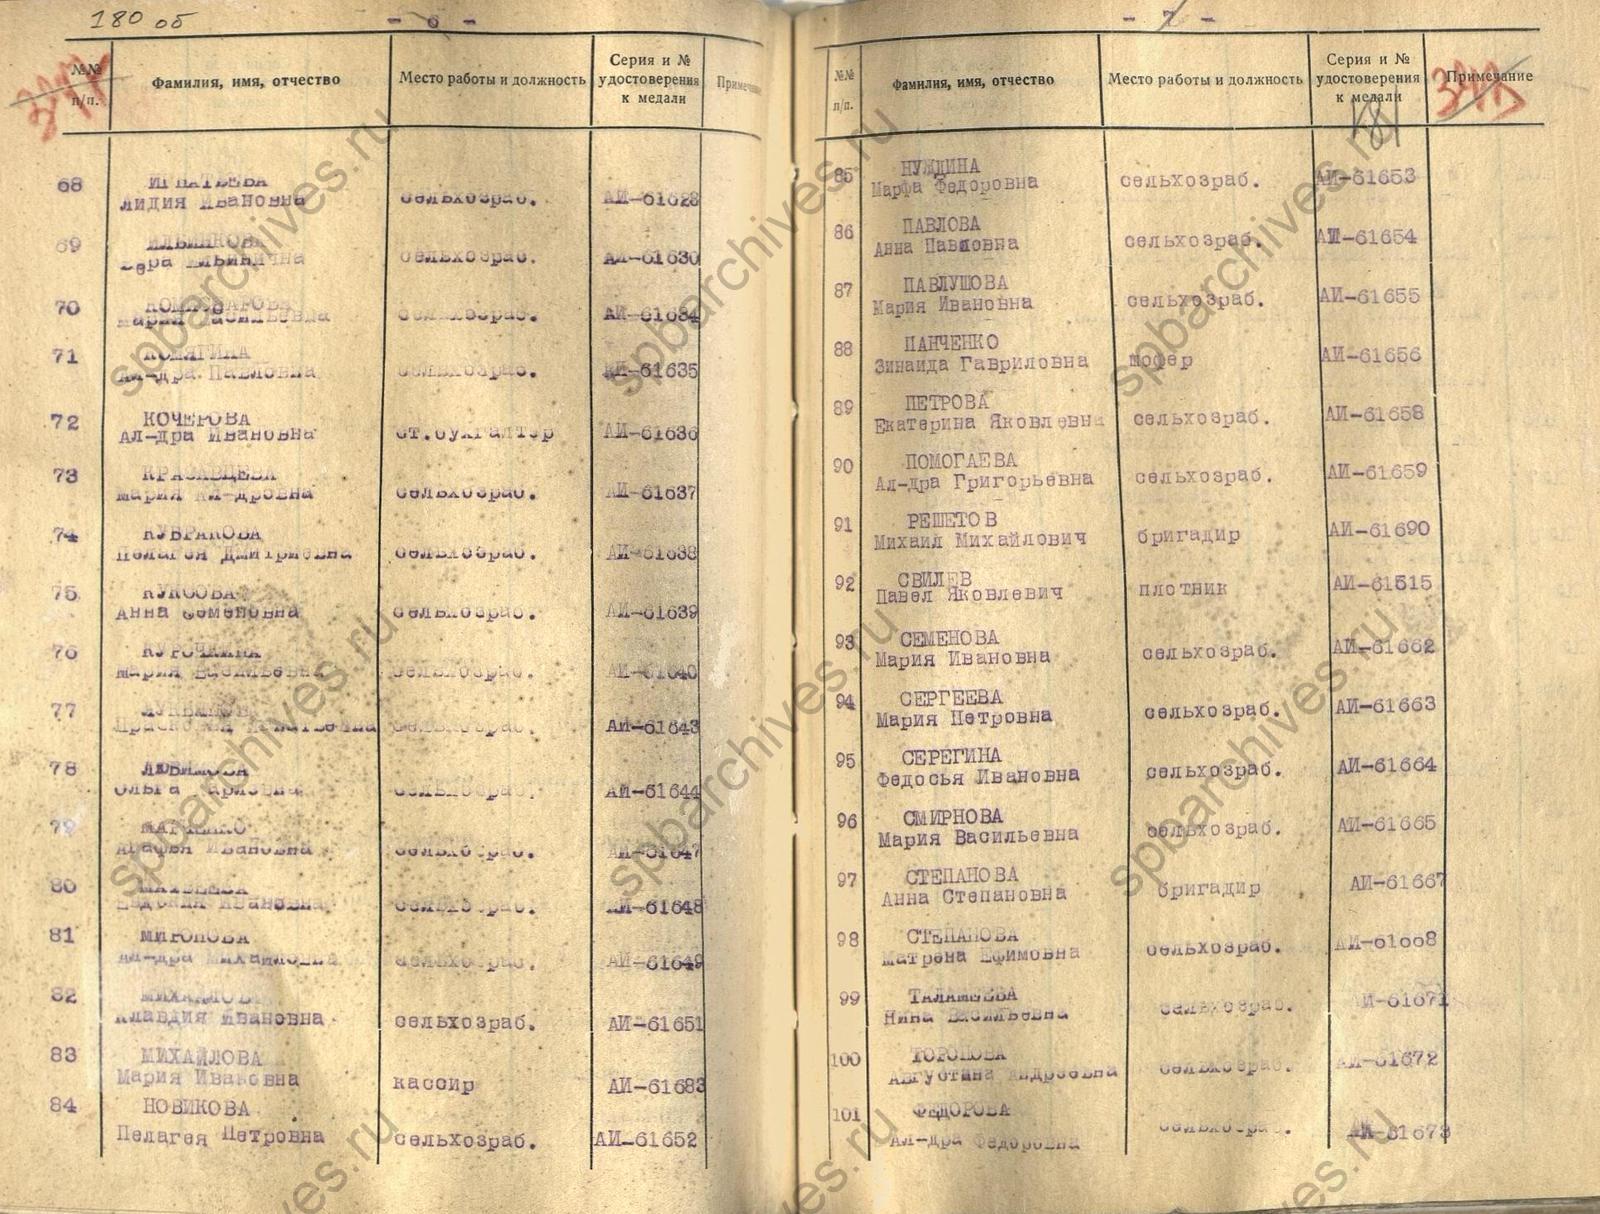 180 об
- 6 -
№№ п/п.
Фамилия, имя, отчество
Место работы и должность
Серия и №
удостоверения
к медали
68 ИГНАТЬЕВА
Лидия Ивановна сельхозраб. АИ-61628
69
Вера Ильинична сельхозраб. АИ-61630
70
Мария Васильевна сельхозраб. АИ-61634
71 КОМЯГИНА
Ал-дра Павловна сельхозраб. АИ-61635
72 КОЧЕРОВА
Ал-дра Ивановна ст.бухгалтер АИ-61636
73 КРАСАВЦЕВА
Мария Ал-дровна сельхозраб. АИ-61637
74 КУБРАКОВА
Пелагея Дмитриевна сельхозраб. АИ-61638
75
Анна Семеновна сельхозраб. АИ-61639
76 КУРОЧКИНА
Мария Васильевна сельхозраб. АИ-61640
77
Игнатьевна сельхозраб. АИ-61643
78 ЛЮБИМОВА
Ольга сельхозраб. АИ-61644
79 МАРЧЕНКО
Агафья Ивановна сельхозраб. АИ-61647
80 МАТВЕЕВА
Евдокия Ивановна сельхозраб. АИ-61648
81 МИРОНОВА
Ал-дра Михайловна сельхозраб. АИ-61649
82 МИХАЙЛОВА
Клавдия Ивановна сельхозраб. АИ-61651
83 МИХАЙЛОВА
Мария Ивановна кассир АИ-61683
84 НОВИКОВА
Пелагея Петровна сельхозраб. АИ-61652
- 7 -
№№ п/п.
Фамилия, имя, отчество
Место работы и должность
Серия и №
удостоверения
к медали
Примечание
181
85 НУЖДИНА
Марфа Федоровна сельхозраб. АИ-61653
86 ПАВЛОВА
Анна Павловна сельхозраб. АИ-61654
87 ПАВЛУШОВА
Мария Ивановна сельхозраб. АИ-61655
88 ПАНЧЕНКО
Зинаида Гавриловна шофер АИ-61656
89 ПЕТРОВА
Екатерина Яковлевна сельхозраб. АИ-61658
90 ПОМОГАЕВА
Ал-дра Григорьевна сельхозраб. АИ-61659
91 РЕШЕТОВ
Михаил Михайлович бригадир АИ-61690
92 СВИЛЕВ
Павел Яковлевич плотник АИ-61515
93 СЕМЕНОВА
Мария Ивановна сельхозраб. АИ-61662
94 СЕРГЕЕВА
Мария Петровна сельхозраб. АИ-61663
95 СЕРЕГИНА
Федосья Ивановна сельхозраб. АИ-61664
96 СМИРНОВА
Мария Васильевна сельхозраб. АИ-61665
97 СТЕПАНОВА
Анна Степановна бригадир АИ-61667
98 СТЕПАНОВА
Матрена Ефимовна сельхозраб. АИ-61668
99 ТАЛАМЕЕВА
Нина Васильевна сельхозраб. АИ-61671
100 ТОРОПОВА
Августина Андреевна сельхозраб. АИ-61672
101 ФЕДОРОВА
Ал-дра Федоровна сельхозраб. АИ-61673
spbarchives.ru